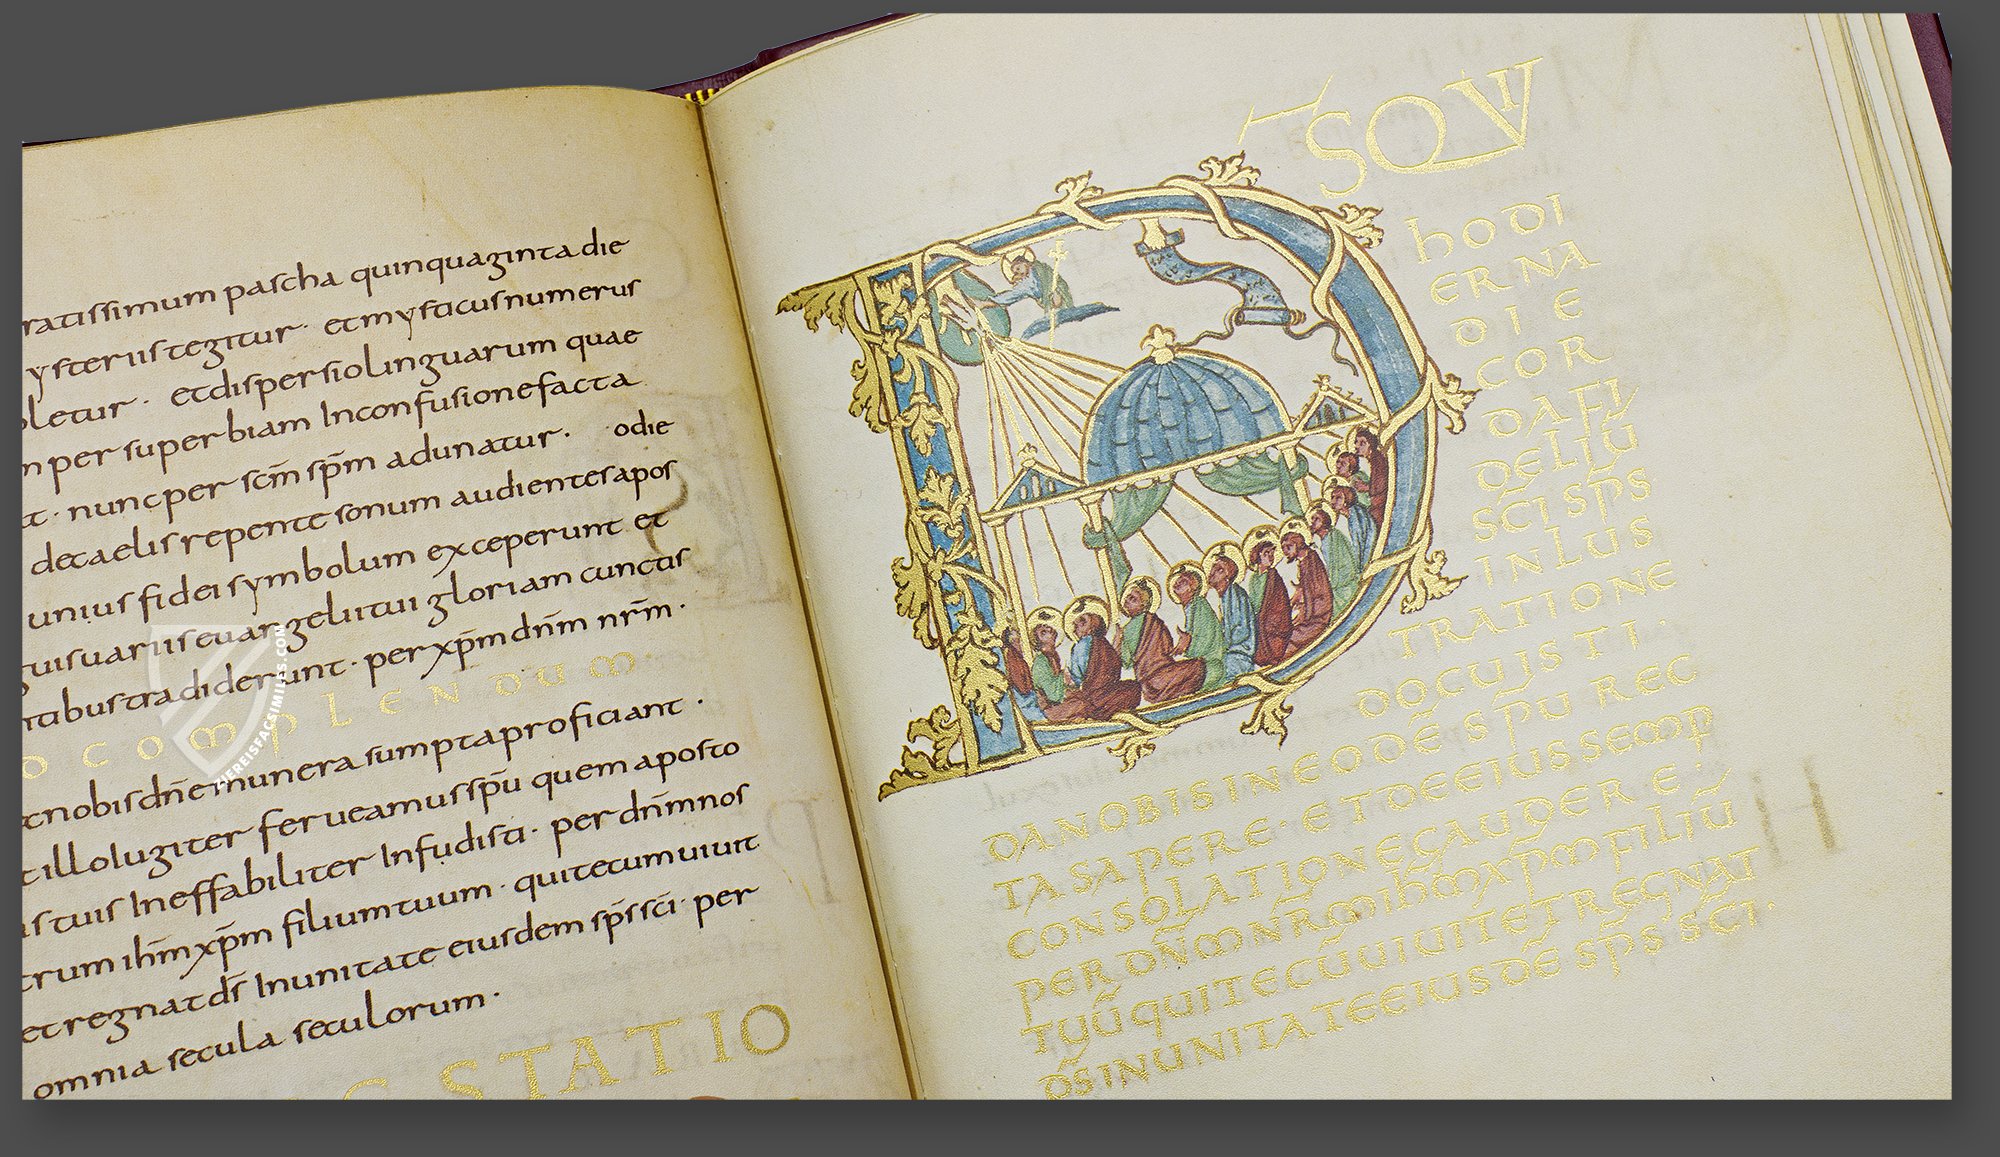 ratissimum pascha quinquaginta die
ysteriis tegitur · et mysticus numerus
oletur · et dispersio linguarum quae
n per superbiam In confusione facta
t · nunc per scm̄ spm̄ adunatur · odie
de caelis repente sonum audientes apos
unius fidei symbolum exceperunt et
guis uariis euangelii tui gloriam cunctis
ntibus tradiderunt · per xpm̄ dnm̄ nrm̄ ·
D COMPLENDUM
t nobis dnē munera sumpta proficiant ·
t illo lugiter ferueamus spū quem aposto
is tuis Ineffabiliter Infudisti · per dnm̄ nos
trum ihm̄ xpm̄ filium tuum · qui tecum uiuit
et regnat ds̄ In unitate eiusdem sps̄ sci̅ · per
omnia secula seculorum ·
STATIO
DS QVI
hODI
ERNA
DIE
COR
DA FI
DELIŪ
SC̅I SP̅S
INLUS
TRATIONE
DOCUISTI ·
DA NOBIS IN EODĒ SPŪ REC
TA SAPERE · ET DE EIUS SEMP
CONSOLATIONE GAUDERE ·
PER DN̄M NR̄M IHM̄ XPM̄ FILIŪ
TUŪ QUI TECŪ UIUIT ET REGNAT
DS̄ IN UNITATE EIUSDĒ SP̅S SC̅I ·
ZIEREISFACSIMILES.COM